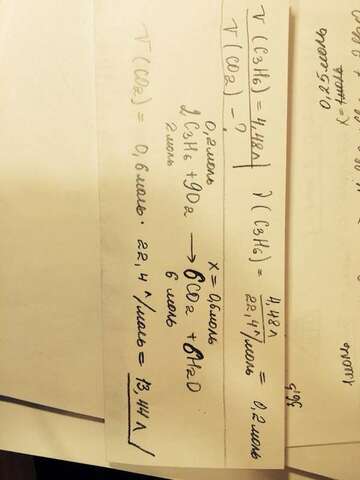 V(C3H6) = 4,48л
V(CO2) - ?
ν(C3H6) = 4,48л / 22,4 л/моль = 0,2 моль
0,2 моль x = 0,6 моль
2C3H6 + 9O2 → 6CO2 + 6H2O
2 моль 6 моль
V(CO2) = 0,6 моль · 22,4 л/моль = 13,44 л
0,25 моль